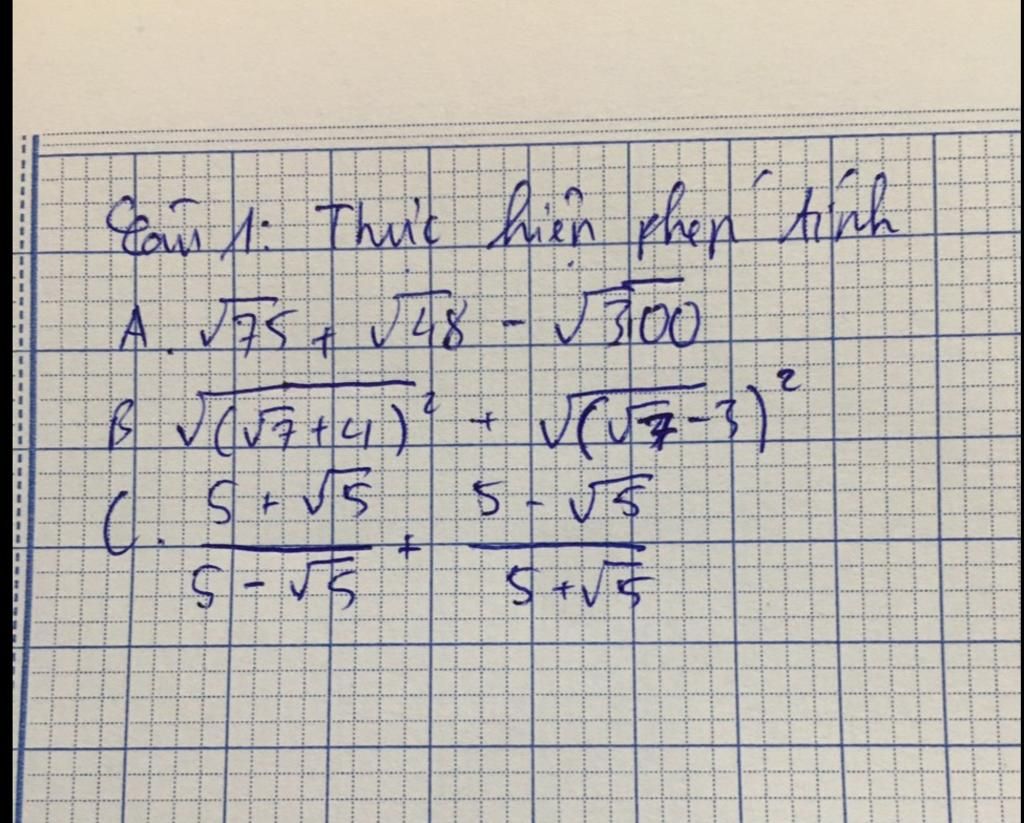 Câu 1: Thực hiện phép tính
A. √75 + √48 - √300
B √(√7+4)² + √(√7-3)²
C. (5 + √5)/(5 - √5) + (5 - √5)/(5 + √5)